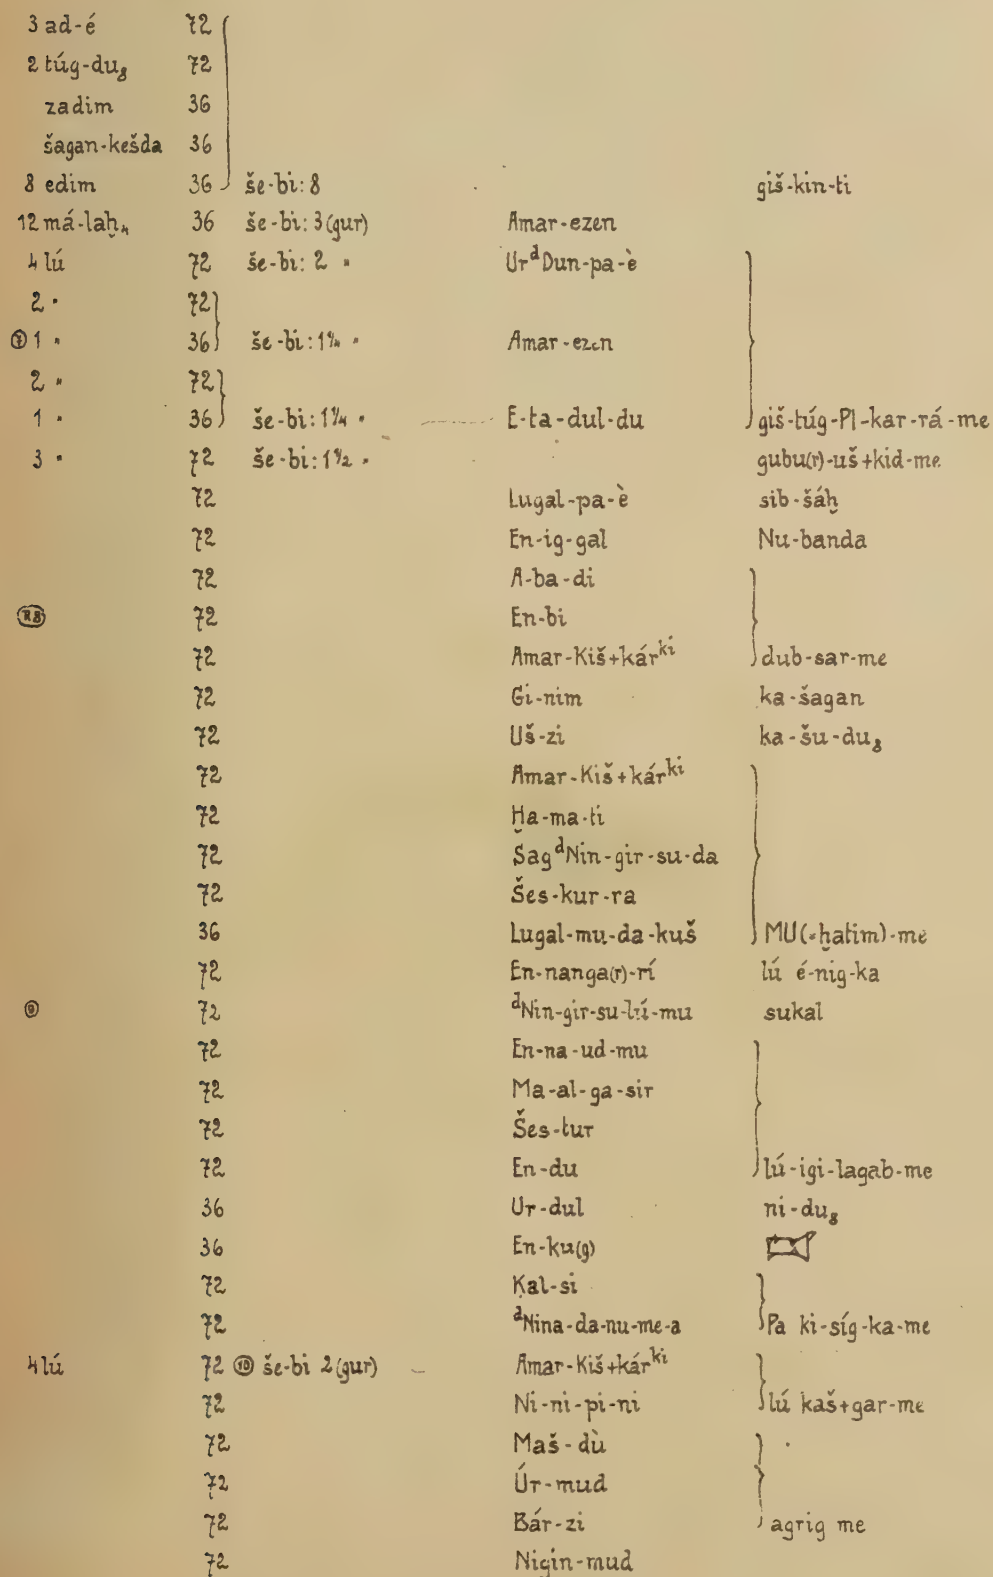 3 ad-é 72
2 túg-du₈ 72
zadim 36
šagan-kešda 36
8 edim 36 še-bi: 8 giš-kin-ti
12 má-laḫ₄ 36 še-bi: 3(gur) Amar-ezen
4 lú 72 še-bi: 2 " Ur ᵈDun-pa-è
2 " 72
⑦ 1 " 36 še-bi: 1¼ " Amar-ezen
2 " 72
1 " 36 še-bi: 1¼ " E-ta-dul-du giš-túg-PI-kar-rá-me
3 " 72 še-bi: 1½ " gubu(r)-uš+kid-me
72 Lugal-pa-è sib-šáḫ
72 En-ig-gal Nu-banda
72 A-ba-di
R8 72 En-bi
72 Amar-Kiš+kár ᵏⁱ dub-sar-me
72 Gi-nim ka-šagan
72 Uš-zi ka-šu-du₈
72 Amar-Kiš+kár ᵏⁱ
72 Ḫa-ma-ti
72 Šag ᵈNin-gir-su-da
72 Šes-kur-ra
36 Lugal-mu-da-kuš MU(=ḫatim)-me
72 En-nanga(r)-rí lú é-nig-ka
⑨ 72 ᵈNin-gir-su-lú-mu sukal
72 En-na-ud-mu
72 Ma-al-ga-sir
72 Šes-tur
72 En-du lú-igi-lagab-me
36 Ur-dul ni-du₈
36 En-ku(g)
72 Kal-si
72 ᵈNina-da-nu-me-a Pa ki-síg-ka-me
4 lú 72 ⑩ še-bi 2(gur) Amar-Kiš+kár ᵏⁱ
72 Ni-ni-pi-ni lú kaš+gar-me
72 Maš-dù
72 Úr-mud
72 Bár-zi agrig me
72 Nigin-mud